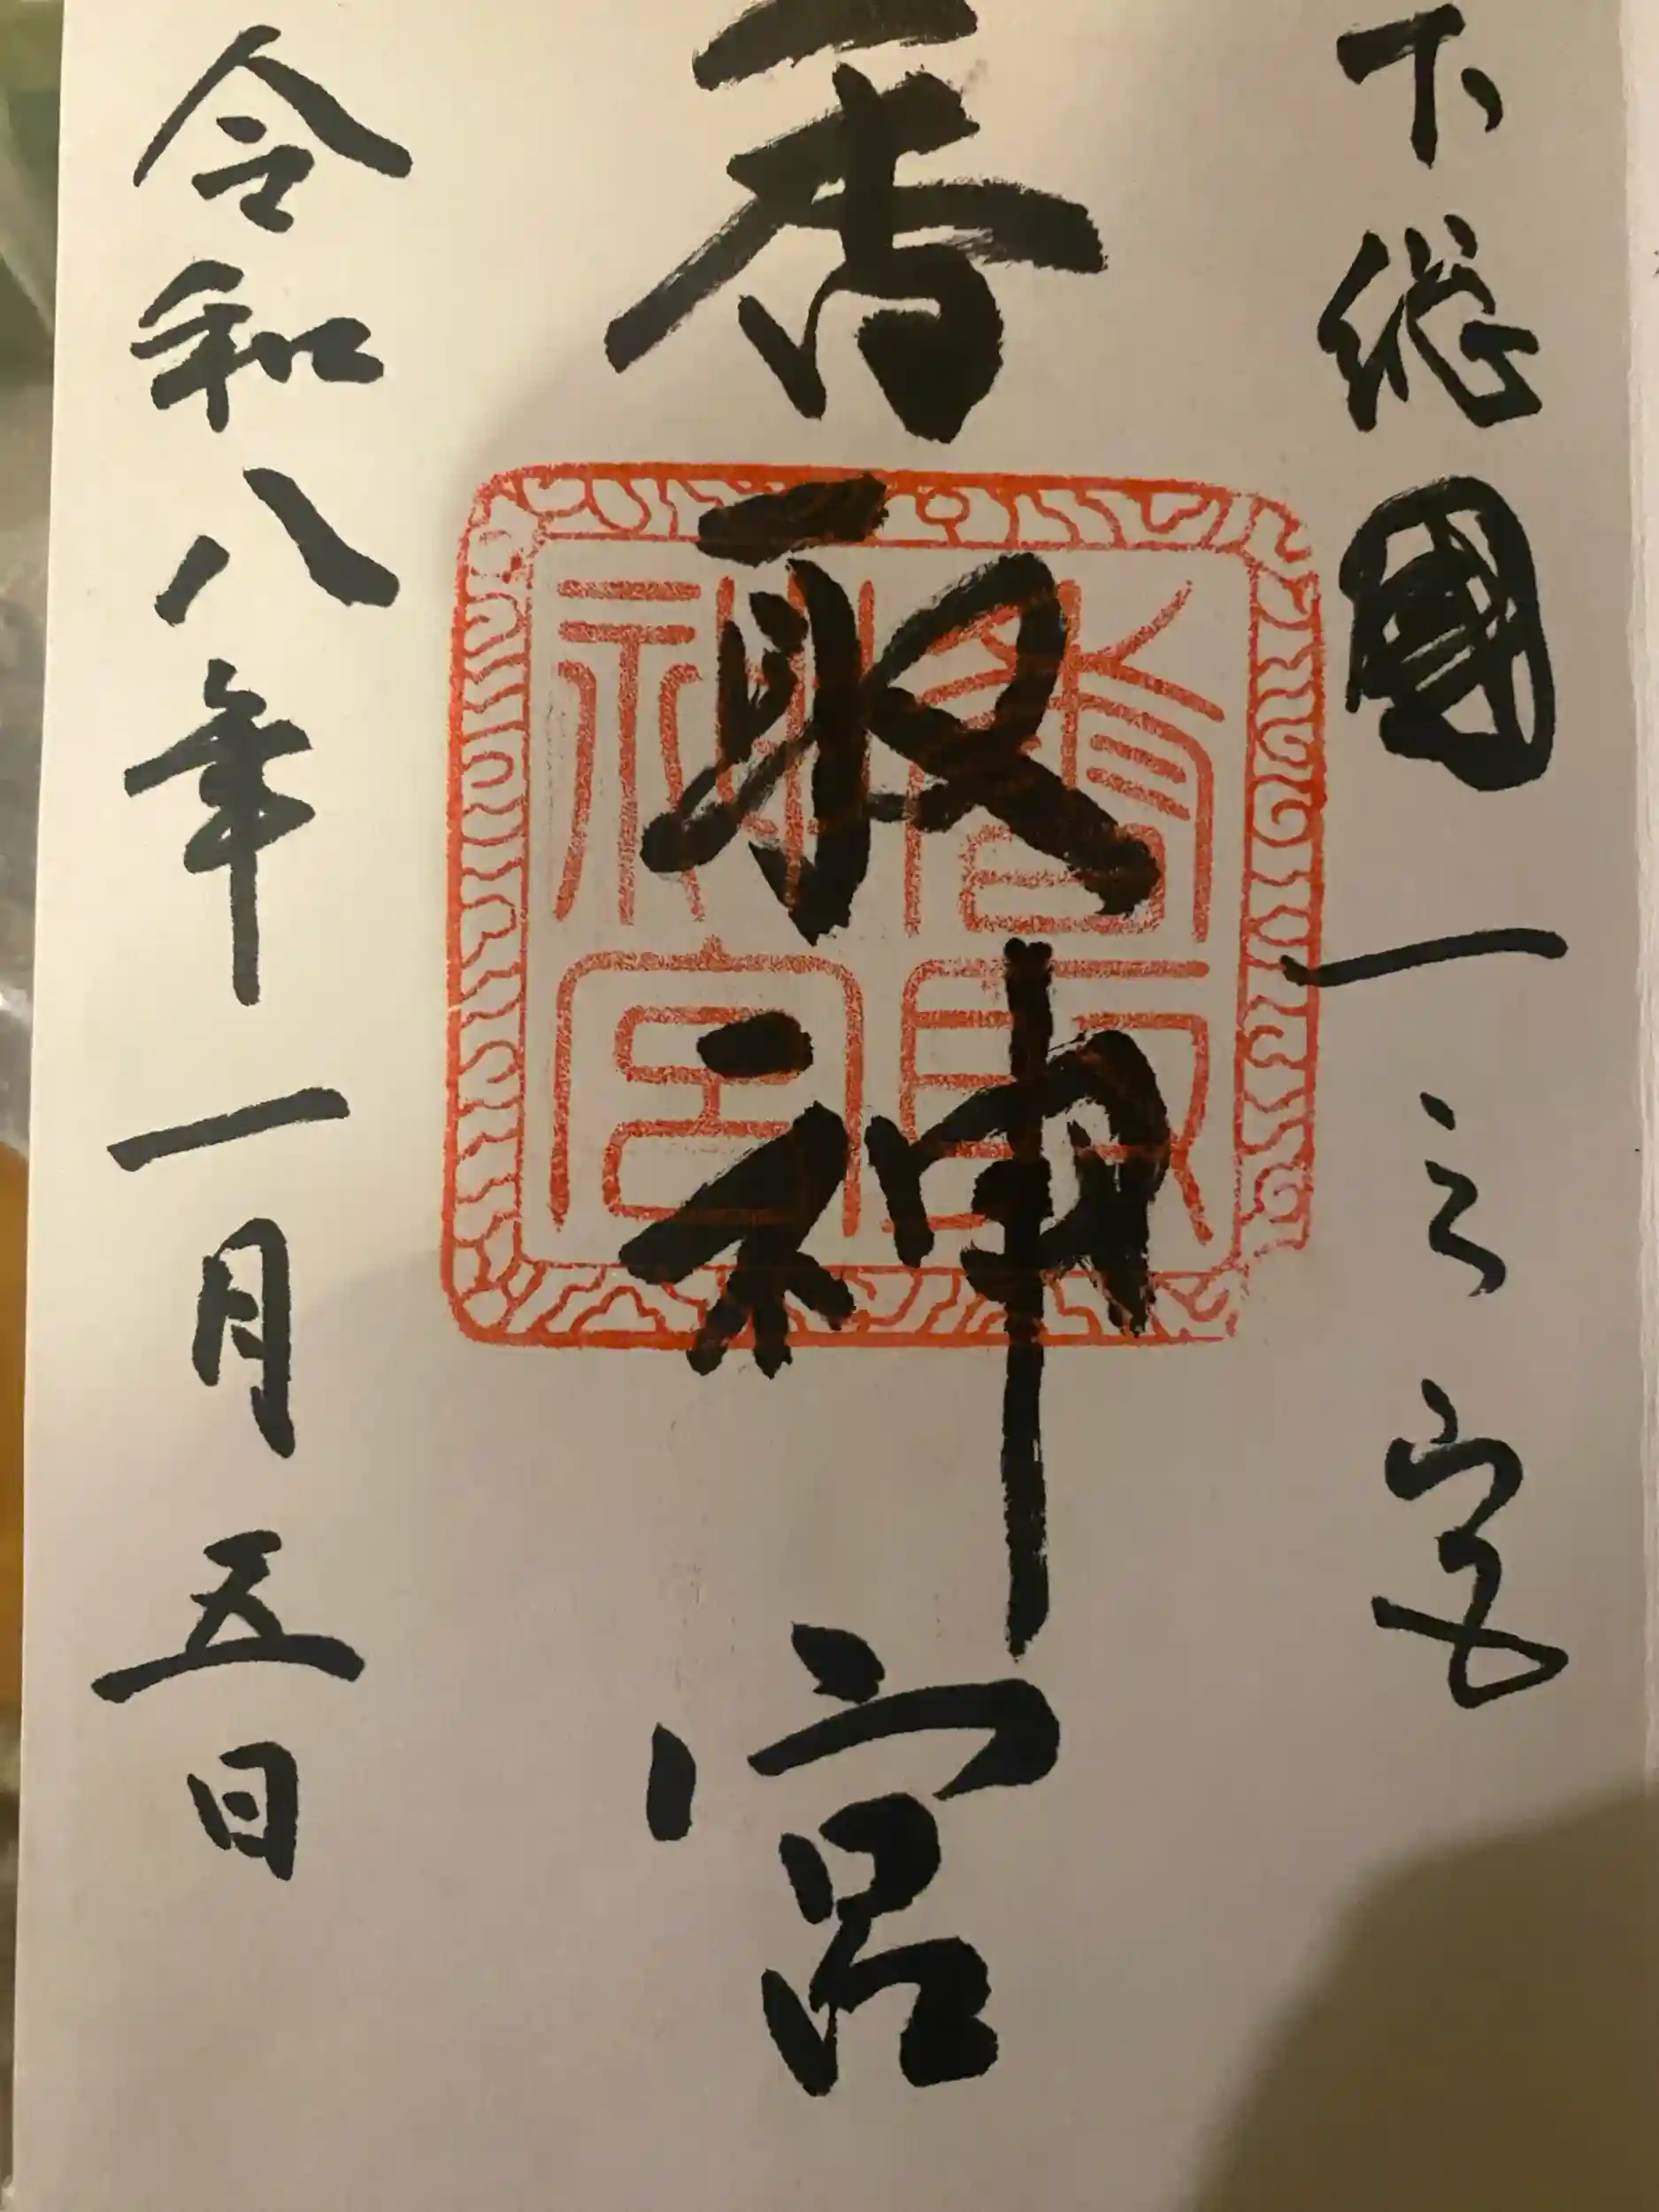 下総國一之宮
香取神宮
香取神宮
令和八年一月五日